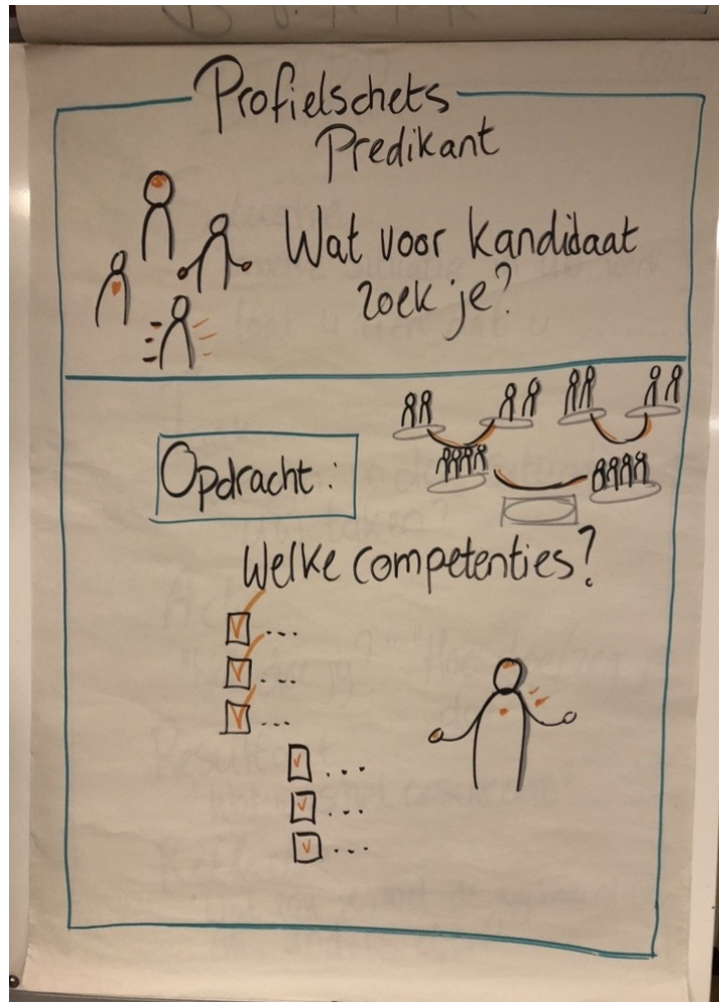 Profielschets
Predikant
Wat voor kandidaat
zoek je?
Opdracht:
Welke competenties?
...
...
...
...
...
...